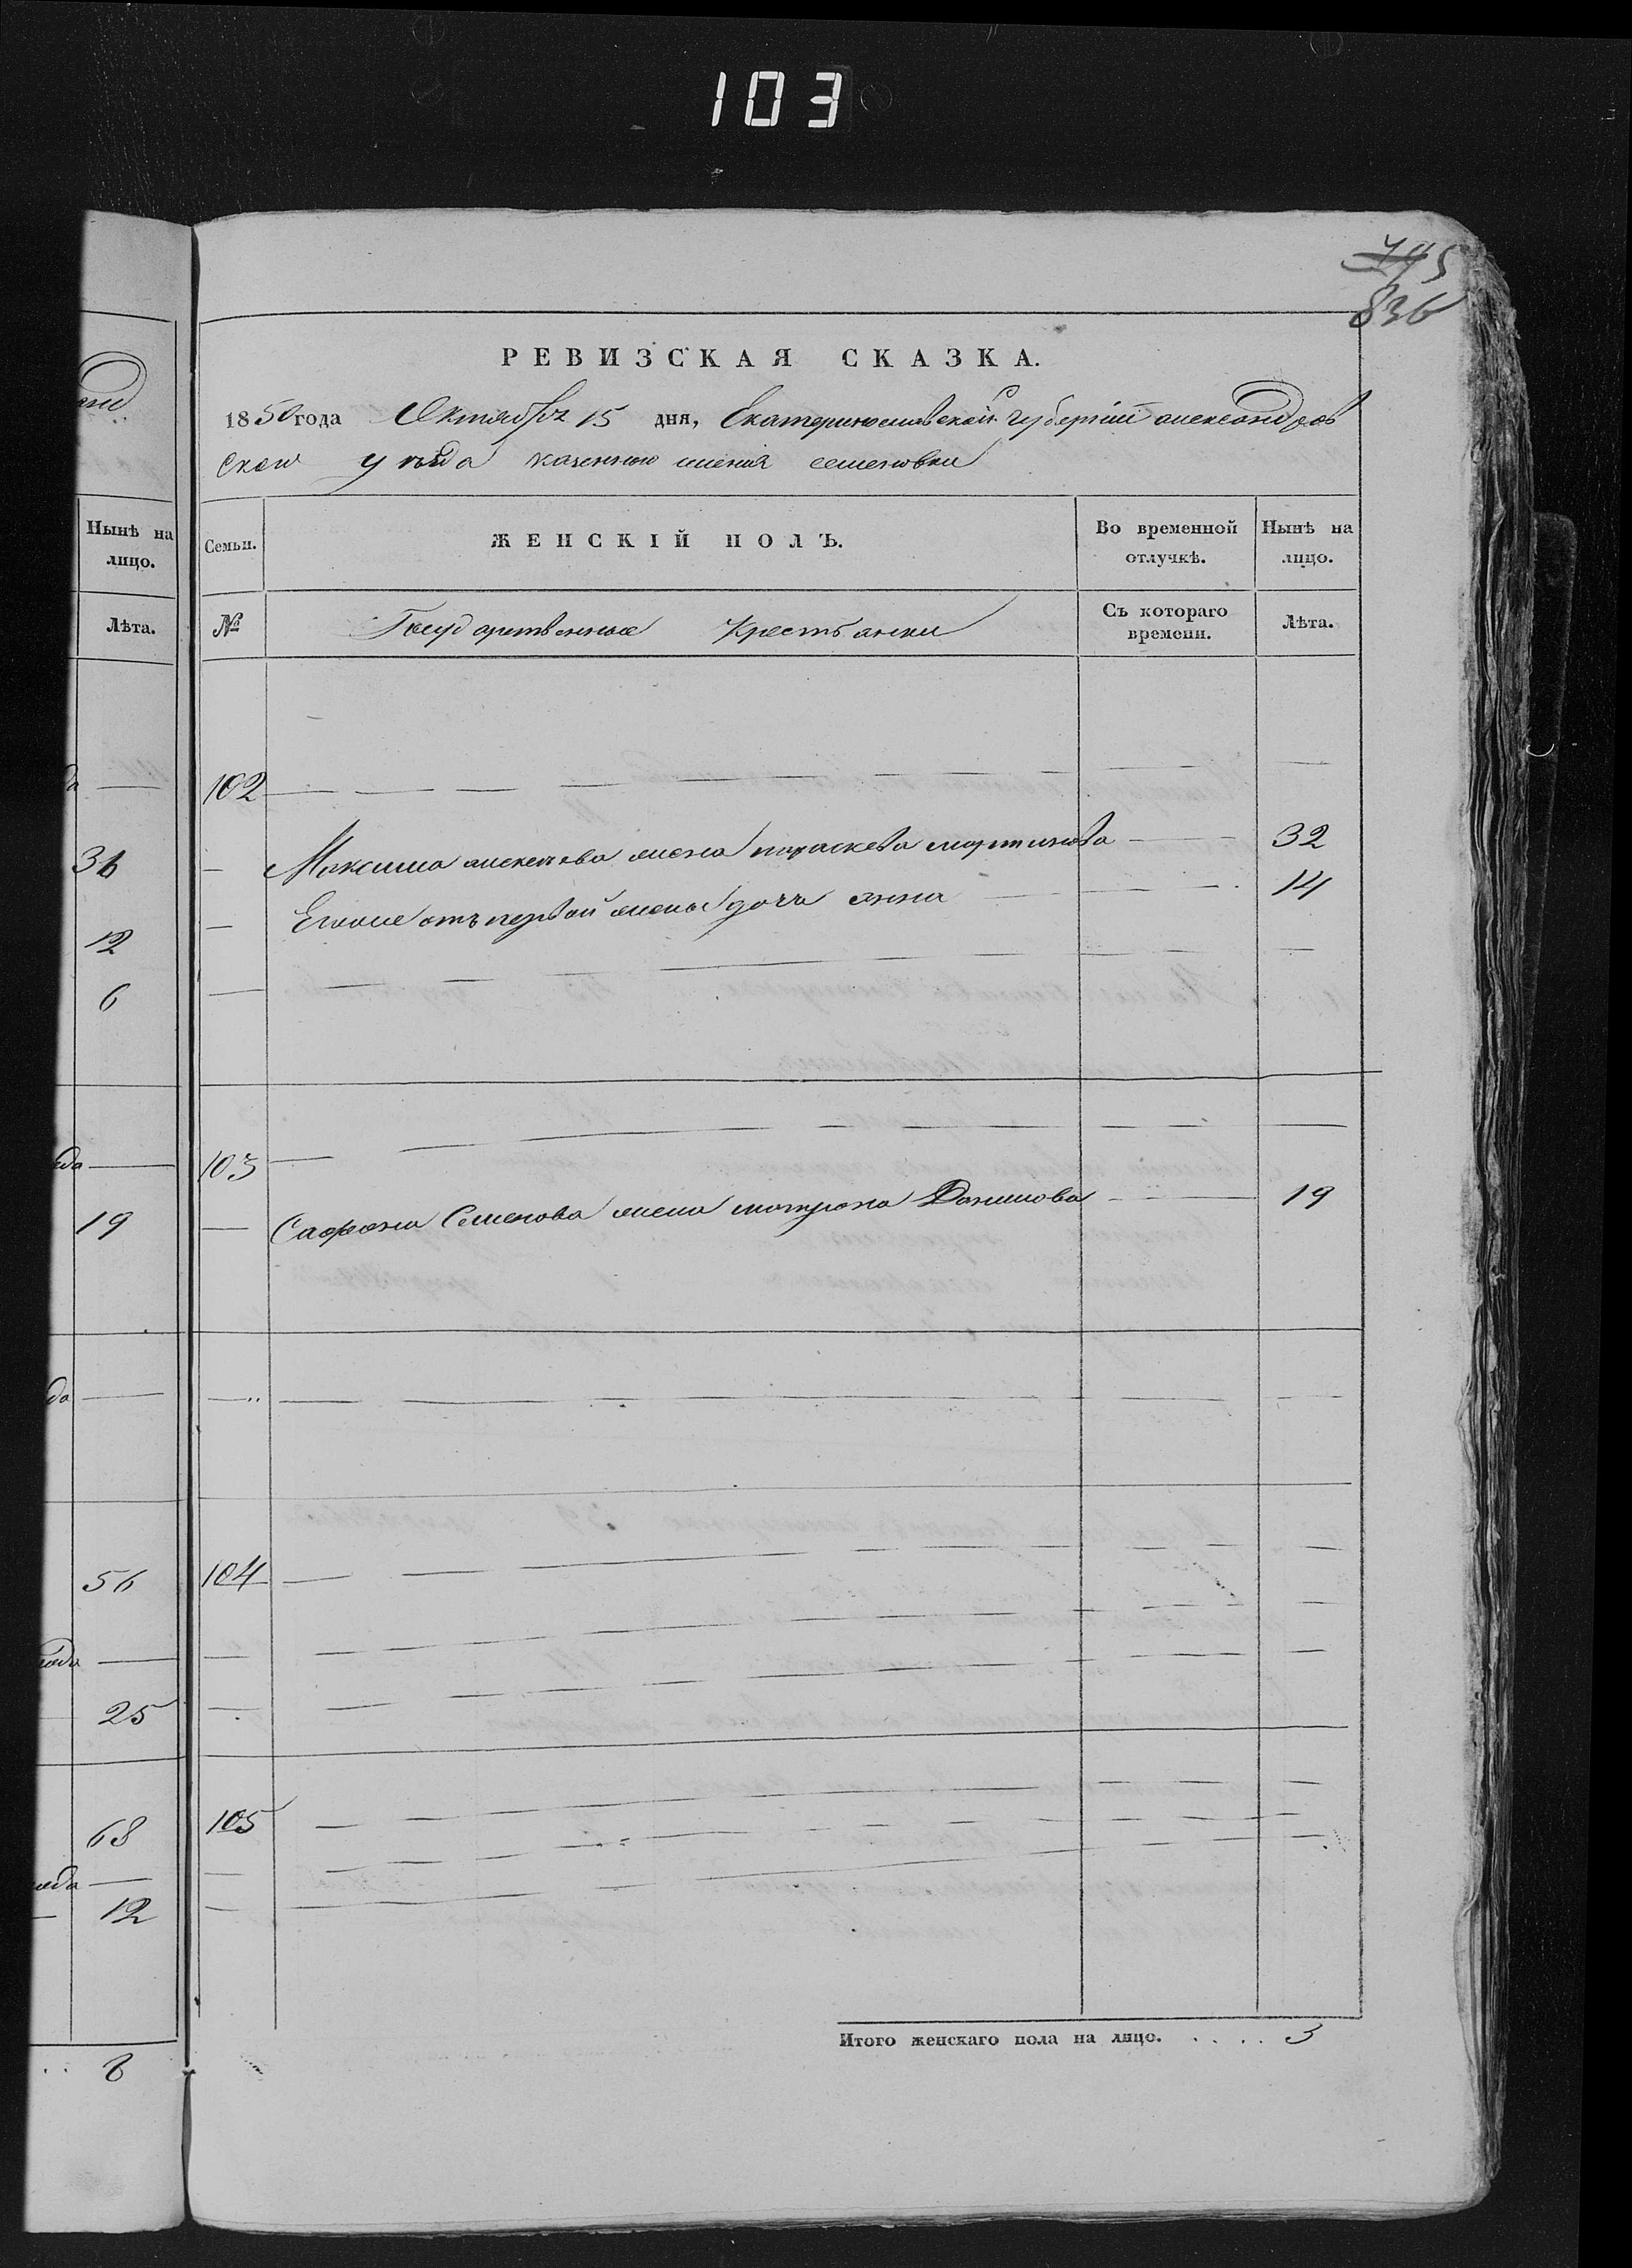 103
745
836
РЕВИЗСКАЯ СКАЗКА.
1850 года Октября 15 дня, Екатеринославской Губернии александров
ской уезда казенного имения семеновки
Нынѣ на лицо.
Семьи.
ЖЕНСКІЙ ПОЛЪ.
Во временной отлучкѣ.
Нынѣ на лицо.
Лѣта.
№
Государственные Крестьянки
Съ котораго времени.
Лѣта.
102
36
Максима алексеева жена параскева мартинова 32
12
Егоже отъ первой жены дочь анна 14
6
103
19
Сафона Семенова жена матрона Данилова 19
56
104
25
68
105
12
Итого женскаго пола на лицо. . . . . 3
8